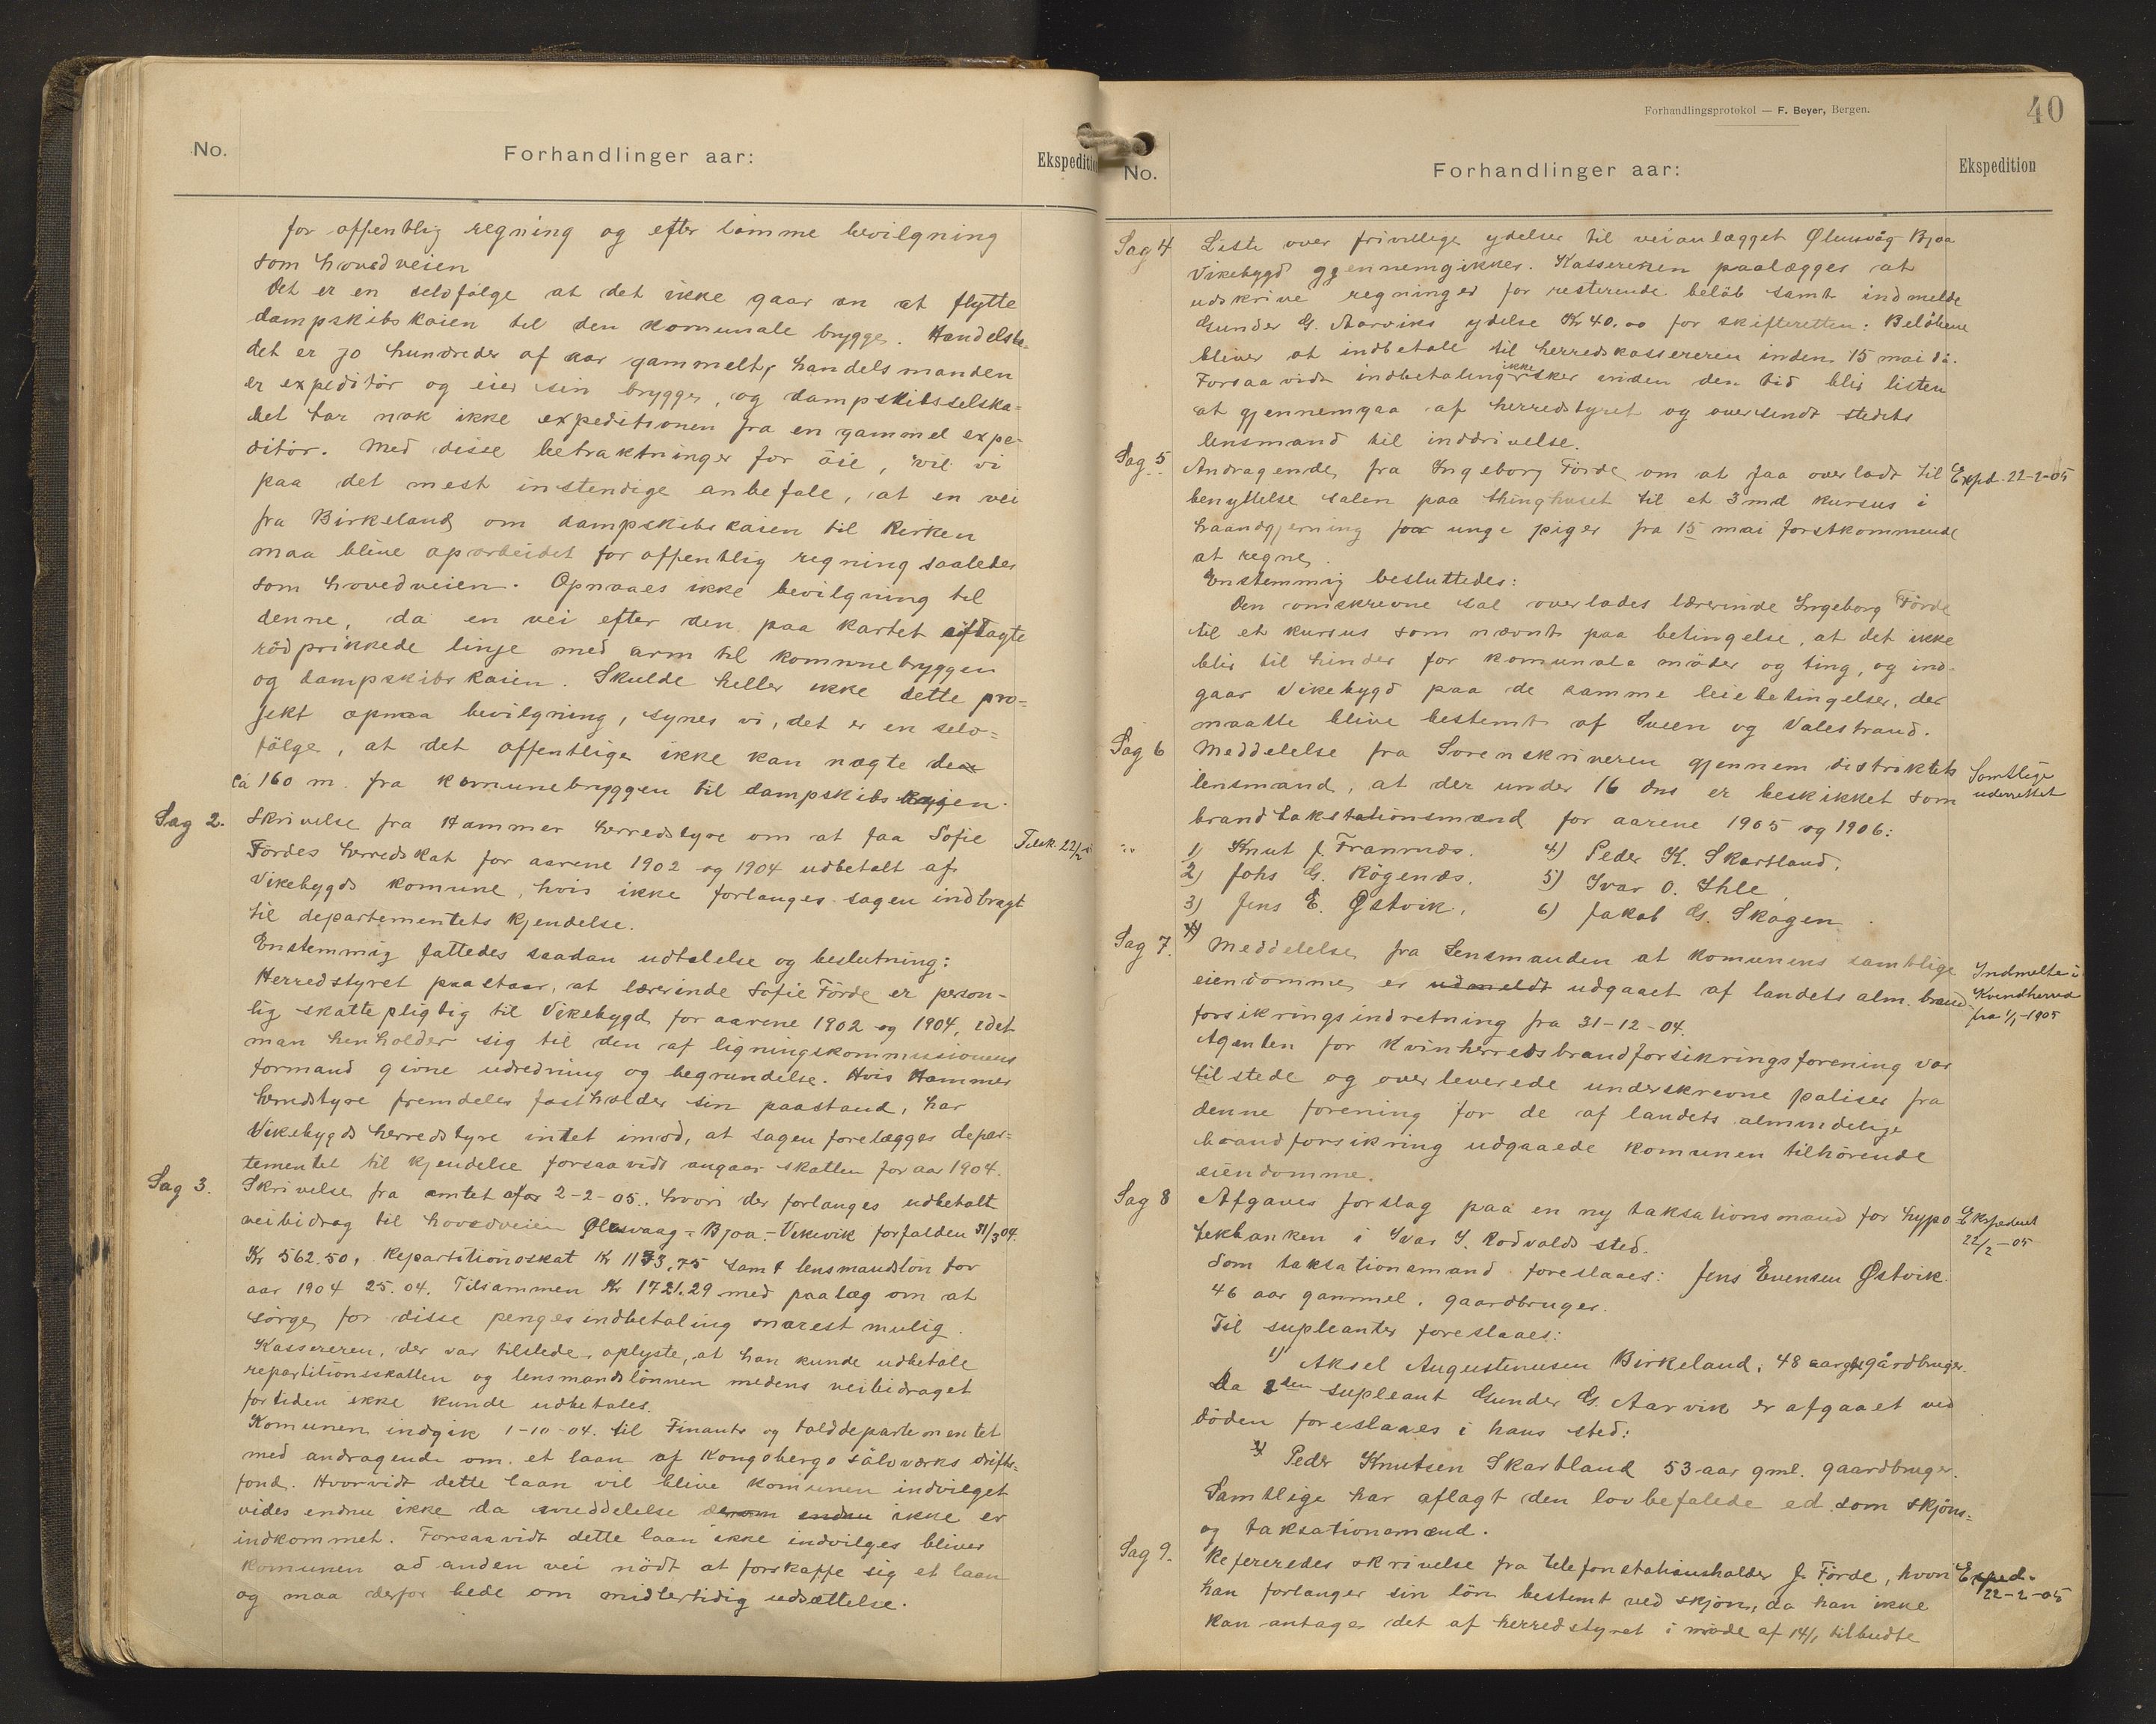 No.
Forhandlinger aar:
Ekspedition
for offentlig regning og efter samme bevilgning
som hovedveien
Det er en selvfölge at det ikke gaar an at flytte
dampskibskaien til den komunale brygge. Handelsste-
det er jo hundreder af aar gammelt, handelsmanden
er expeditör og eier sin brygge, og dampskibsselska=
bet tar nok ikke expeditionen fra en gammel expe-
ditör. Med disse betraktninger for öie, vil vi
paa det mest instendige anbefale, at en vei
fra Birkeland om dampskibskaien til Kirken
maa blive oparbeidet for offentlig regning saaledes
som hovedveien. Opnaaes ikke bevilgning til
denne, da en vei efter den paa kartet aftagte
rödprikkede linje med arm til kommunebryggen
og dampskibskaien. Skulde heller ikke dette pro=
jekt opnaa bevilgning, synes vi, det er en selv=
fölge, at det offentlige ikke kan nægte de
ca 160 m. fra komunebryggen til dampskibskaien.
Sag 2. Skrivelse fra Hammer herredstyre om at faa Sofie
Tilsk. 22/2
Fördes herredskat for aarene 1902 og 1904 udbetalt af
Vikebygds komune, hvis ikke forlanges sagen indbragt
til departementets kjendelse.
Enstemmig fattedes saadan udtalelse og beslutning:
Herredstyret paastaar, at lærerinde Sofie Förde er person-
lig skattepligtig til Vikebygd for aarene 1902 og 1904, idet
man henholder sig til den af ligningskommissionens
formand givne udredning og begrundelse. Hvis Hammer
herredstyre fremdeles fastholder sin paastand, har
Vikebygds herredstyre intet imod, at sagen forelægges depar=
tementet til kjendelse forsaavidt angaar skatten for aar 1904.
Sag 3. Skrivelse fra amtet afor 2-2-05. hvori der forlanges udbetalt
veibidrag til hovedveien Ølensvaag - Bjoa - Vikevik forfalden 31/3 04.
Kr 562.50, Repartitionsskat Kr 1133,75 samt lensmandslön for
aar 1904 25.04. Tilsammen Kr 1721.29 med paalæg om at
sörge for disse penges indbetaling snarest mulig.
Kassereren, der var tilstede, oplyste, at han kunde udbetale
repartitionsskatten og lensmandslönnen medens veibidraget
fortiden ikke kunde udbetales.
Komunen indgik 1-10-04. til Finants og tolddepartementet
med andragende om et laan af Kongsbergs sölvværks drifts=
fond. Hvorvidt dette laan vil blive komunen indvilget
vides endnu ikke da meddelelse derom endnu ikke er
indkommet. Forsaavidt dette laan ikke indvilges bliver
komunen ad anden vei nödt at forskaffe sig et laan
og maa derfor bede om midlertidig udsættelse.
Forhandlingsprotokol — F. Beyer, Bergen.
40
No.
Forhandlinger aar:
Ekspedition
Sag 4 Liste over frivillige ydelser til veianlægget Ølensvåg Bjoa
Vikebygd gjennemgikkes. Kassereren paalægges at
udskrive regninger for resterende beløb samt indmelde
Gunder G. Aarviks ydelse Kr 40.00 for skifteretten: Beløbene
bliver at indbetale til herredskassereren inden 15 mai då.
Forsaavidt indbetaling ikke sker inden den tid blir listen
at gjennemgaa af herredstyret og oversendt stedets
lensmand til inddrivelse.
Sag 5. Andragende fra Ingeborg Förde om at faa overladt til
Exped. 22-2-05
benyttelse salen paa thinghuset til et 3 md kursus i
haandgjerning for unge piger fra 15 mai förstkommende
at regne.
Enstemmig besluttedes:
Den omskrevne sal overlades lærerinde Ingeborg Förde
til et kursus som nævnt paa betingelse, at det ikke
blir til hinder for komunale möder og ting, og ind-
gaar Vikebygd paa de samme leiebetingelser, der
maatte blive bestemt af Sveen og Valestrand.
Sag 6 Meddelelse fra Sorenskriveren gjennem distriktets
Samtlige
underrettet
lensmand, at der under 16 dns er beskikket som
brandtakstationsmænd for aarene 1905 og 1906:
1) Knut J. Framnæs. 4) Peder K. Skartland.
2) Johs G. Rögenæs. 5) Ivar O. Ihle
3) Jens E. Østvik. 6) Jakob G. Skogen.
Sag 7. Meddelelse fra Lensmanden at komunens samtlige
Indmeldte i
Kvindherred
fra 1/1-1905
eiendomme er udmeldt udgaaet af landets alm. brand-
forsikringsindretning fra 31-12-04.
Agenten for Kvinherreds brandforsikringsforening var
tilstede og overleverede underskrevne poliser fra
denne forening for de af landets almindelige
brandforsikring udgaaede komunen tilhörende
eiendomme.
Sag 8 Afgaves forslag paa en ny taksationsmand for hypo
Ekspedert
22/2-05
tekbanken i Ivar I. Rodvolds sted.
Som taksationsmand foreslaaes: Jens Evensen Østvik
46 aar gammel, gaardbruger.
Til supleanter foreslaaes:
1) Aksel Augustinusen Birkeland, 48 aar gl. gårdbruger.
Da 2den supleant Gunder G. Aarvik er afgaaet ved
döden foreslaaes i hans sted:
2) Peder Knutsen Skartland 53 aar gml. gaardbruger.
Samtlige har aflagt den lovbefalede ed som skjöns=
og taksationsmænd.
Sag 9. Refereredes skrivelse fra telefonstationsholder J. Förde, hvori
Exped.
22-2-05
han forlanger sin lön bestemt ved skjön, da han ikke
kan antage det af herredstyret i möde af 14/1 tilbudte